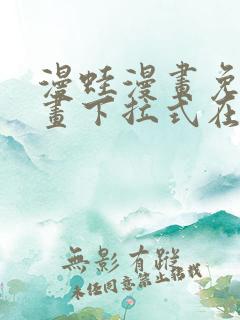 漫蛙漫畫免
畫下拉式在
無影有蹤
未经同意禁止转载